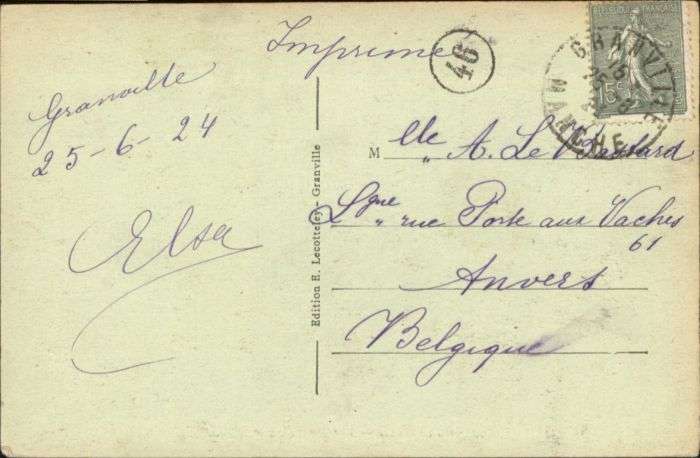 Imprimé
46
REPUBLIQUE FRANÇAISE
15c
GRANVILLE
25 - 6
MANCHE
Granville
25-6-24
Elsa
Edition E. Lecotteley - Granville
Mlle " A. Le
Lgue " rue Porte aux Vaches
61
Anvers
Belgique